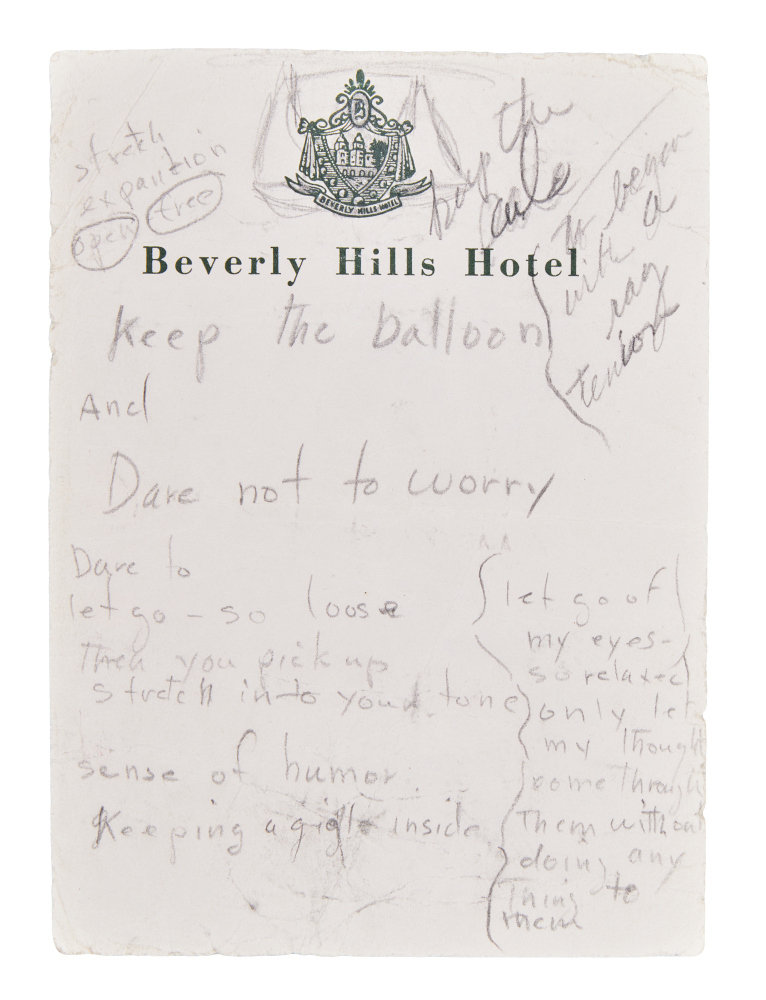 stretch
expantion
open free
BEVERLY HILLS HOTEL
Beverly Hills Hotel
the
to begin
with a
rag
Keep the balloon
And
Dare not to worry
Dare to
let go - so loose
Then you pick up
stretch into your tone
sense of humor.
Keeping a giggle inside
let go of
my eyes -
so relaxed
only let
my thought
come through
Them without
doing any
Thing to
them